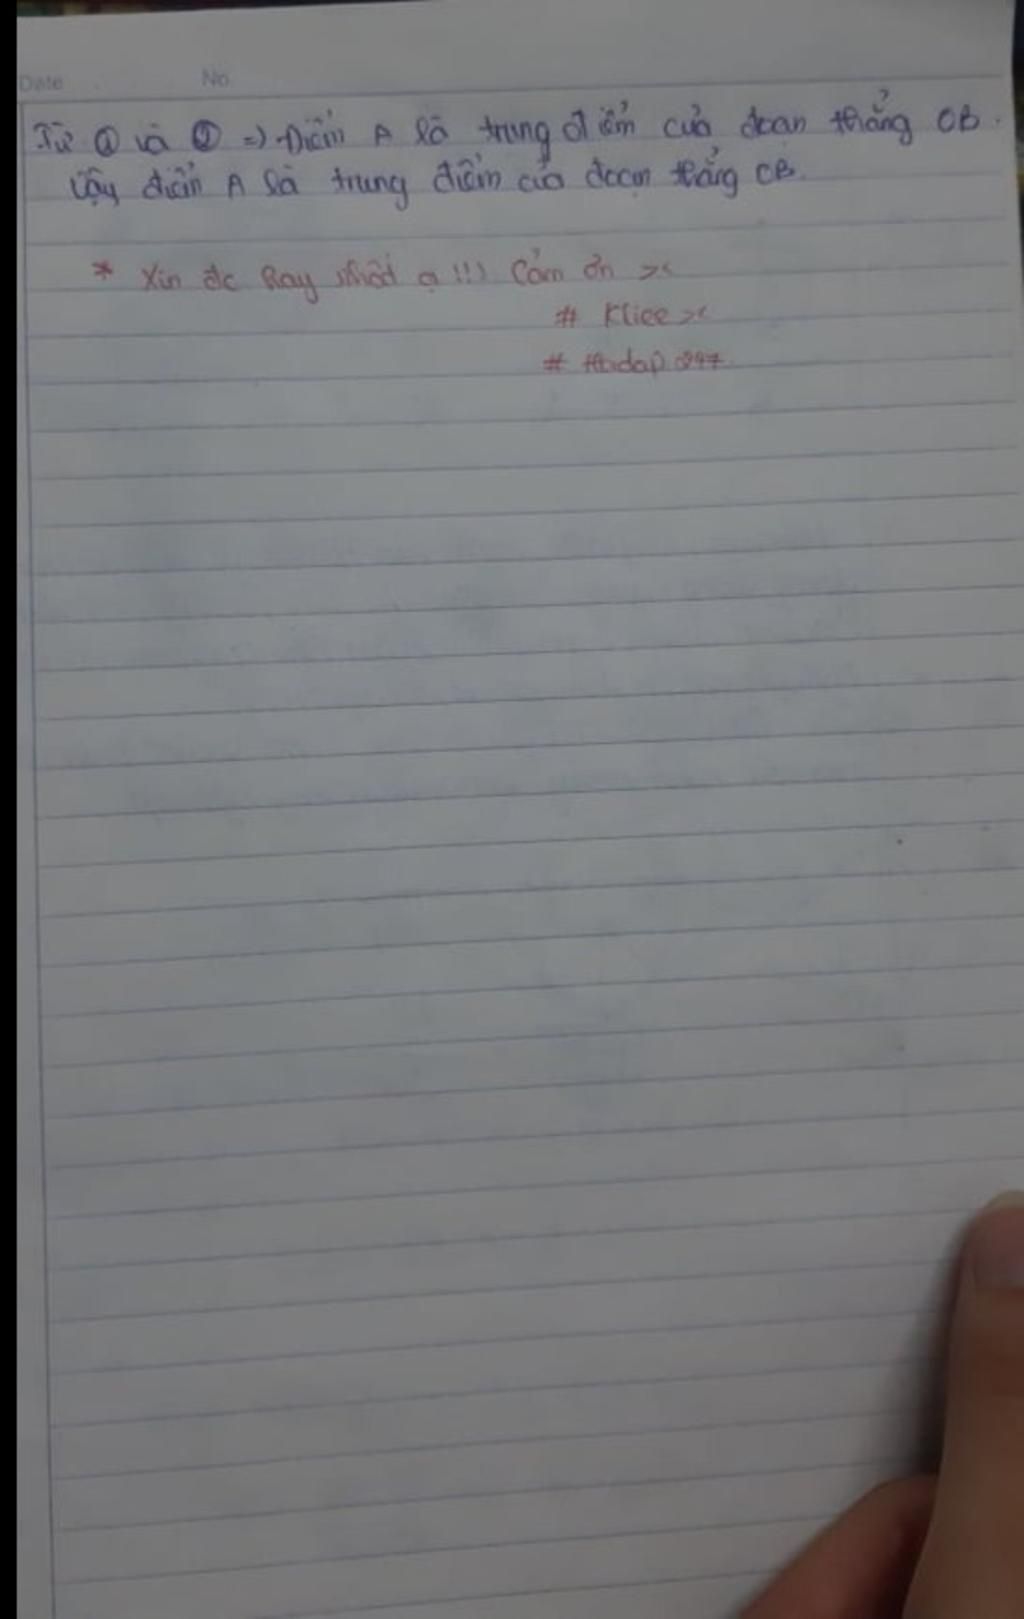 Date No
Từ ① và ② => Điểm A là trung điểm của đoạn thẳng CB.
Vậy điểm A là trung điểm của đoạn thẳng CB.
* Xin đc hay nhất ạ !!! Cảm ơn ><
# Klice ><
# Hoidap 247